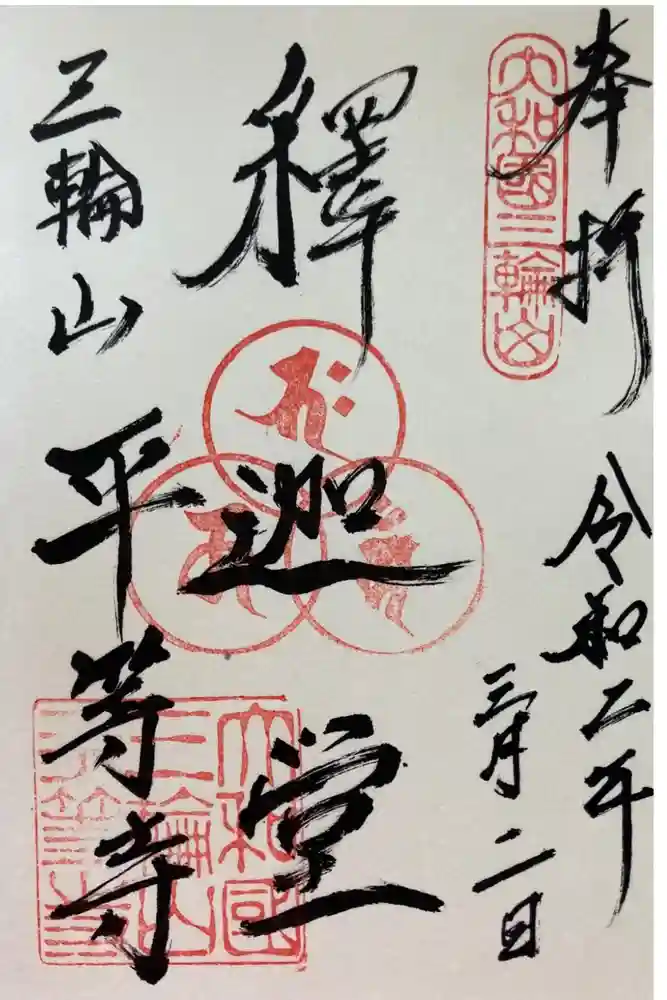 奉拝
令和二年
三月二日
大和國三輪山
釋迦堂
三輪山
平等寺
大和國三輪山平等寺